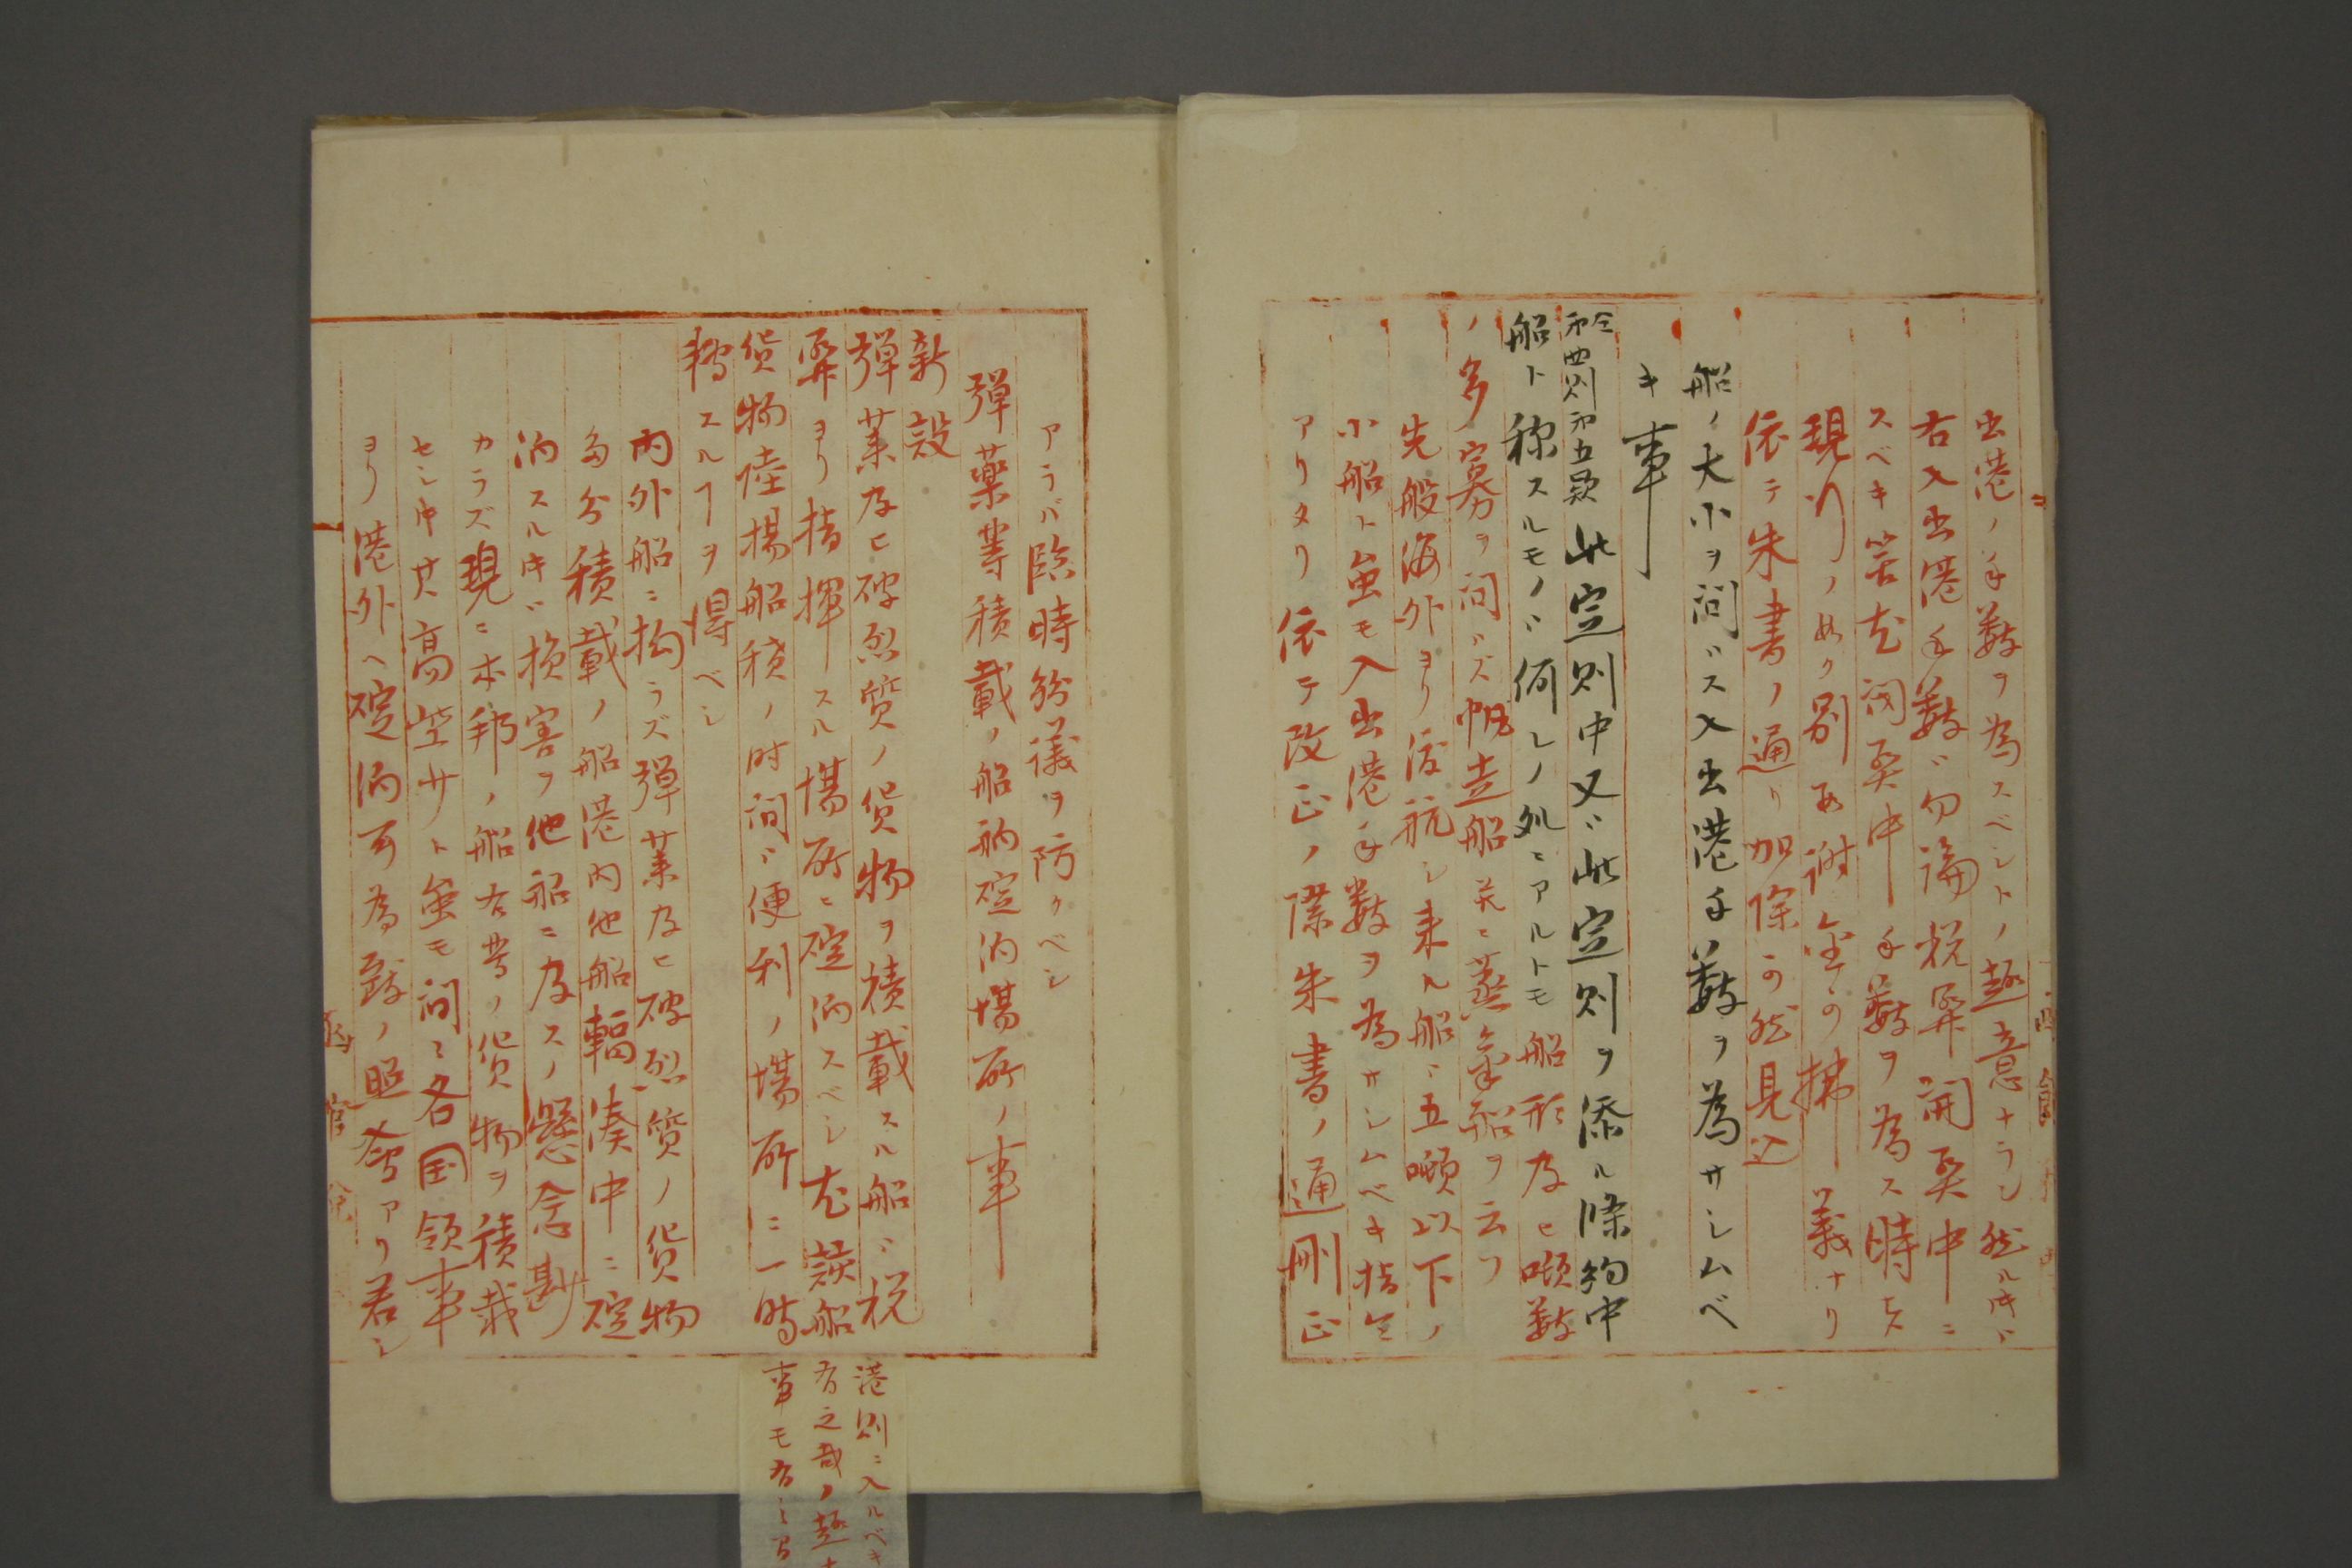 出港ノ手数ヲ為スベシトノ趣意ナラン然ル片ハ
右入出港手数ハ勿論税関開契中ニ
スベキ筈尤閉契中手数ヲ為ス時ハ
現行ノ如ク別段謝金可拂義ナリ
依テ朱書ノ通リ加除可然見込
船ノ大小ヲ問ハス入出港手数ヲ為サシムベ
キ事
仝第四則第五款此定則中又ハ此定則ヲ添ル條約中
船ト称スルモノハ何レノ処ニアルトモ船形及ヒ噸数
ノ多寡ヲ問ハズ帆走船并ニ蒸気船ヲ云フ
先般海外ヨリ渡航シ来ル船ハ五噸以下ノ
小船ト虽モ入出港手数ヲ為サシムベキ指令
アリタリ依テ改正ノ際朱書ノ通刪正
アラバ臨時紛議ヲ防クベシ
弾薬等積載ノ船舶碇泊場所ノ事
新設
弾薬及ヒ破烈質ノ貨物ヲ積載スル船ハ税
関ヨリ指揮スル場所ニ碇泊スベシ尤該船
貨物陸揚船積ノ時間ハ便利ノ場所ニ一時
轉スルヿヲ得ベシ
内外船ニ拘ラズ弾薬及ヒ破烈質ノ貨物
多分積載ノ船港内他船輻湊中ニ碇
泊スル片ハ損害ヲ他船ニ及スノ懸念尠
カラズ現ニ本邦ノ船右等ノ貨物ヲ積載
セシ中其高些少ト虽モ間ニ各国領事
ヨリ港外ヘ碇泊可為致ノ照会アリ若シ
港則ニ入ルベキ
有之哉ノ趣
事モ有之